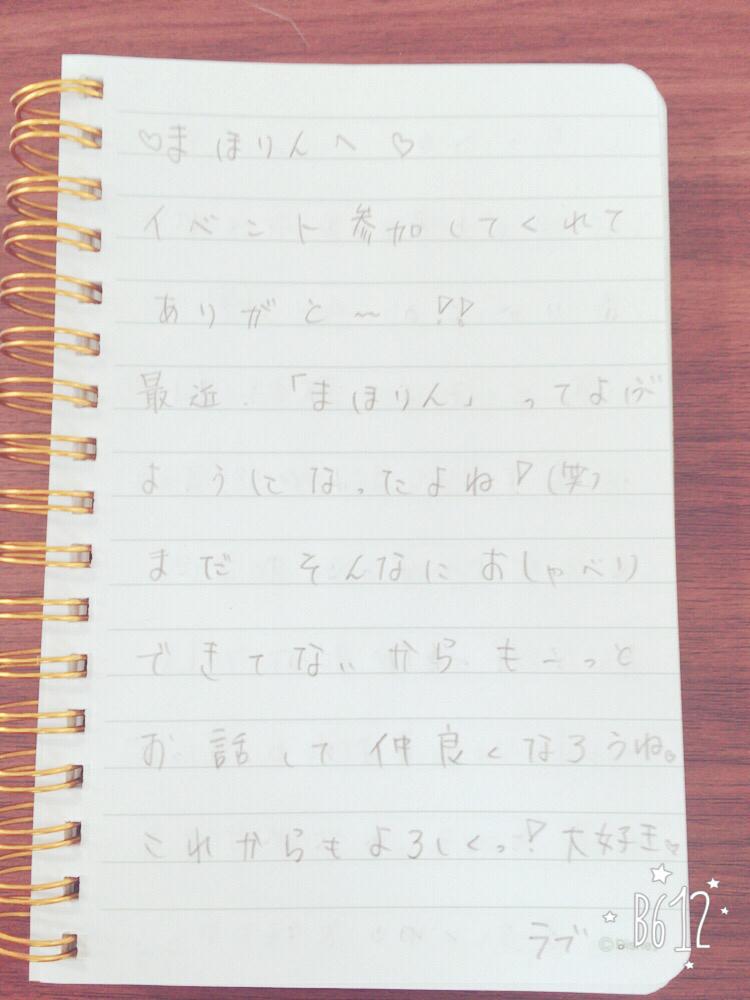 ♡まほりんへ♡
イベント参加してくれて
ありがと〜!!
最近、「まほりん」ってよぶ
ようになったよね!(笑)
まだ そんなにおしゃべり
できてないからも〜っと
お話して仲良くなろうね。
これからもよろしくっ!大好き♡
ラブ
B612